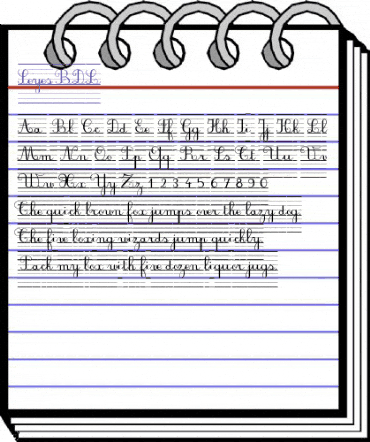 Loyes BDL
Aa Bb Cc Dd Ee Ff Gg Hh Ii Jj Kk Ll
Mm Nn Oo Pp Qq Rr Ss Tt Uu Vv
Ww Xx Yy Zz 1 2 3 4 5 6 7 8 9 0
The quick brown fox jumps over the lazy dog.
The five boxing wizards jump quickly.
Pack my box with five dozen liquor jugs.